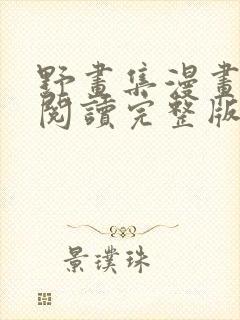 野畫集漫畫
閱讀完整版
景璞珠